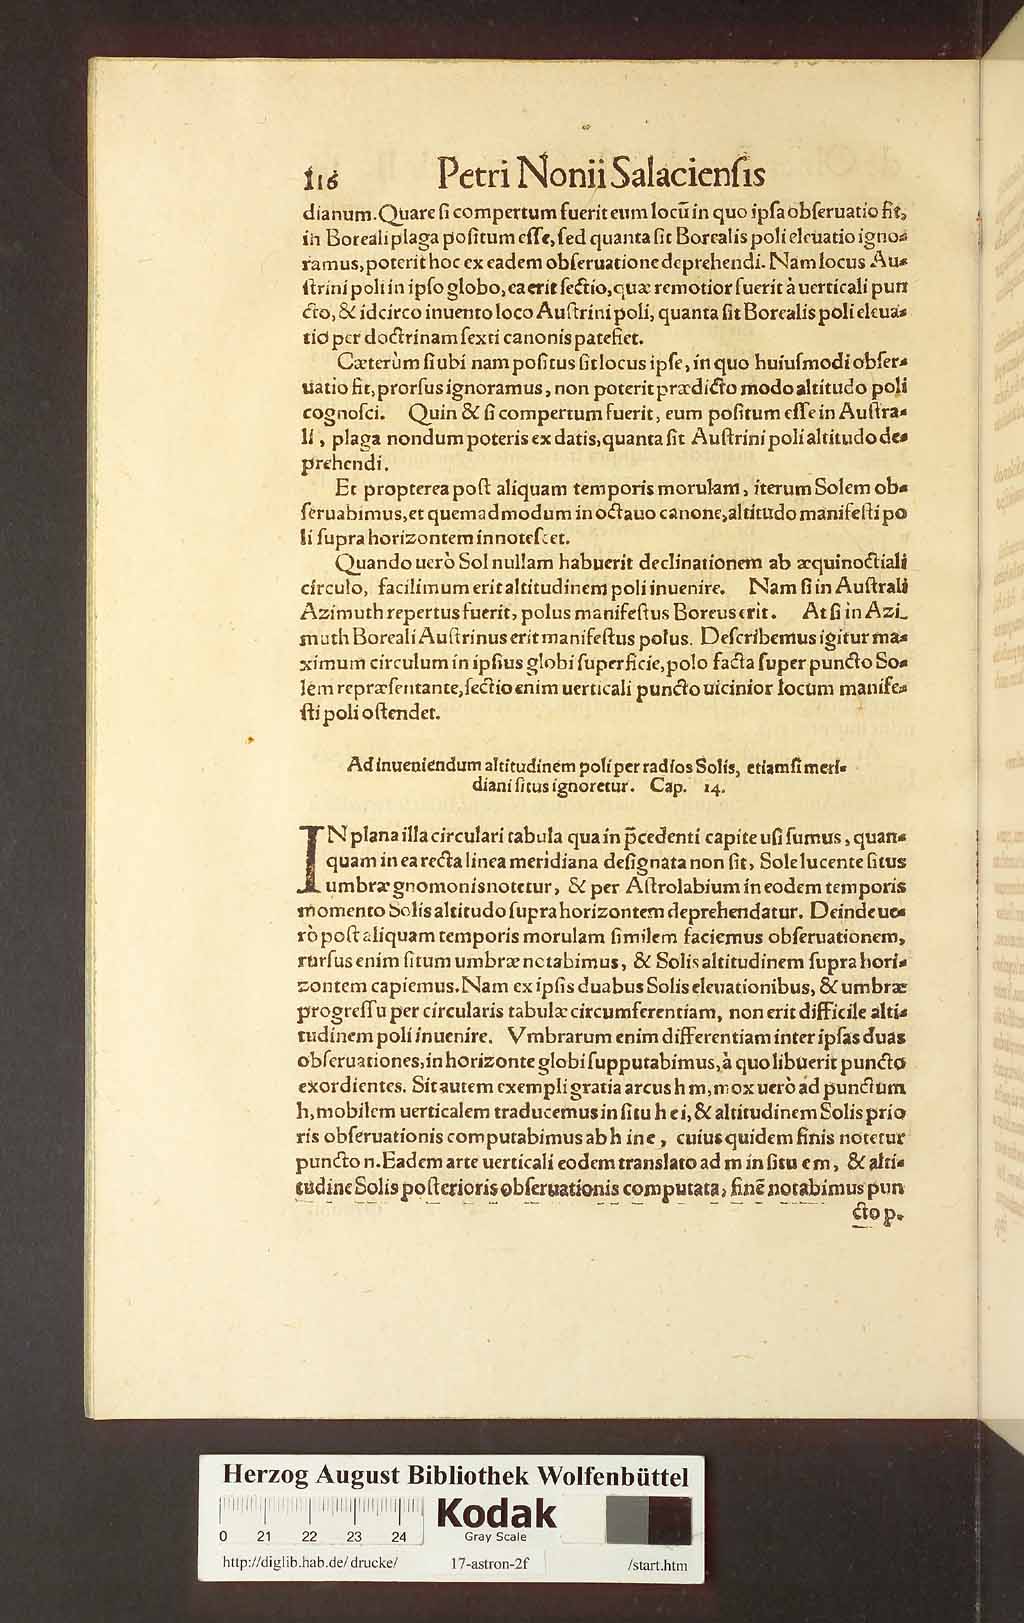 116 Petri Nonii Salaciensis
dianum. Quare ſi compertum fuerit eum locũ in quo ipſa obſeruatio fit,
in Boreali plaga poſitum eſſe, ſed quanta ſit Borealis poli eleuatio igno-
ramus, poterit hoc ex eadem obſeruatione deprehendi. Nam locus Au-
ſtrini poli in ipſo globo, ea erit ſectio, quæ remotior fuerit à uerticali pun
cto, & idcirco inuento loco Auſtrini poli, quanta ſit Borealis poli eleua-
tio per doctrinam ſexti canonis patefiet.
Cæterùm ſi ubi nam poſitus ſit locus ipſe, in quo huiuſmodi obſer-
uatio fit, prorſus ignoramus, non poterit prædicto modo altitudo poli
cognoſci. Quin & ſi compertum fuerit, eum poſitum eſſe in Auſtra-
li, plaga nondum poteris ex datis, quanta ſit Auſtrini poli altitudo de-
prehendi.
Et propterea poſt aliquam temporis morulam, iterum Solem ob-
ſeruabimus, et quemadmodum in octauo canone, altitudo manifeſti po
li ſupra horizontem innoteſcet.
Quando uerò Sol nullam habuerit declinationem ab æquinoctiali
circulo, facilimum erit altitudinem poli inuenire. Nam ſi in Auſtrali
Azimuth repertus fuerit, polus manifeſtus Boreus erit. At ſi in Azi-
muth Boreali Auſtrinus erit manifeſtus polus. Deſcribemus igitur ma-
ximum circulum in ipſius globi ſuperficie, polo facto ſuper puncto So-
lem repræſentante, ſectio enim uerticali puncto uicinior locum manife-
ſti poli oſtendet.
Ad inueniendum altitudinem poli per radios Solis, etiamſi meri-
diani ſitus ignoretur. Cap. 14.
IN plana illa circulari tabula qua in p̄cedenti capite uſi ſumus, quan-
quam in ea recta linea meridiana deſignata non ſit, Sole lucente ſitus
umbræ gnomonis notetur, & per Aſtrolabium in eodem temporis
momento Solis altitudo ſupra horizontem deprehendatur. Deinde ue-
rò poſt aliquam temporis morulam ſimilem faciemus obſeruationem,
rurſus enim ſitum umbræ notabimus, & Solis altitudinem ſupra hori-
zontem capiemus. Nam ex ipſis duabus Solis eleuationibus, & umbræ
progreſſu per circularis tabulæ circumferentiam, non erit difficile alti-
tudinem poli inuenire. Vmbrarum enim differentiam inter ipſas duas
obſeruationes, in horizonte globi ſupputabimus, à quo libuerit puncto
exordientes. Sit autem exempli gratia arcus h m, mox uerò ad punctum
h, mobilem uerticalem traducemus in ſitu h e i, & altitudinem Solis prio
ris obſeruationis computabimus ab h in e, cuius quidem finis notetur
puncto n. Eadem arte uerticali eodem translato ad m in ſitu e m, & alti-
tudine Solis poſterioris obſeruationis computata, finẽ notabimus pun
cto p.
Herzog August Bibliothek Wolfenbüttel
Kodak
Gray Scale
0 21 22 23 24
http://diglib.hab.de/drucke/ 17-astron-2f /start.htm